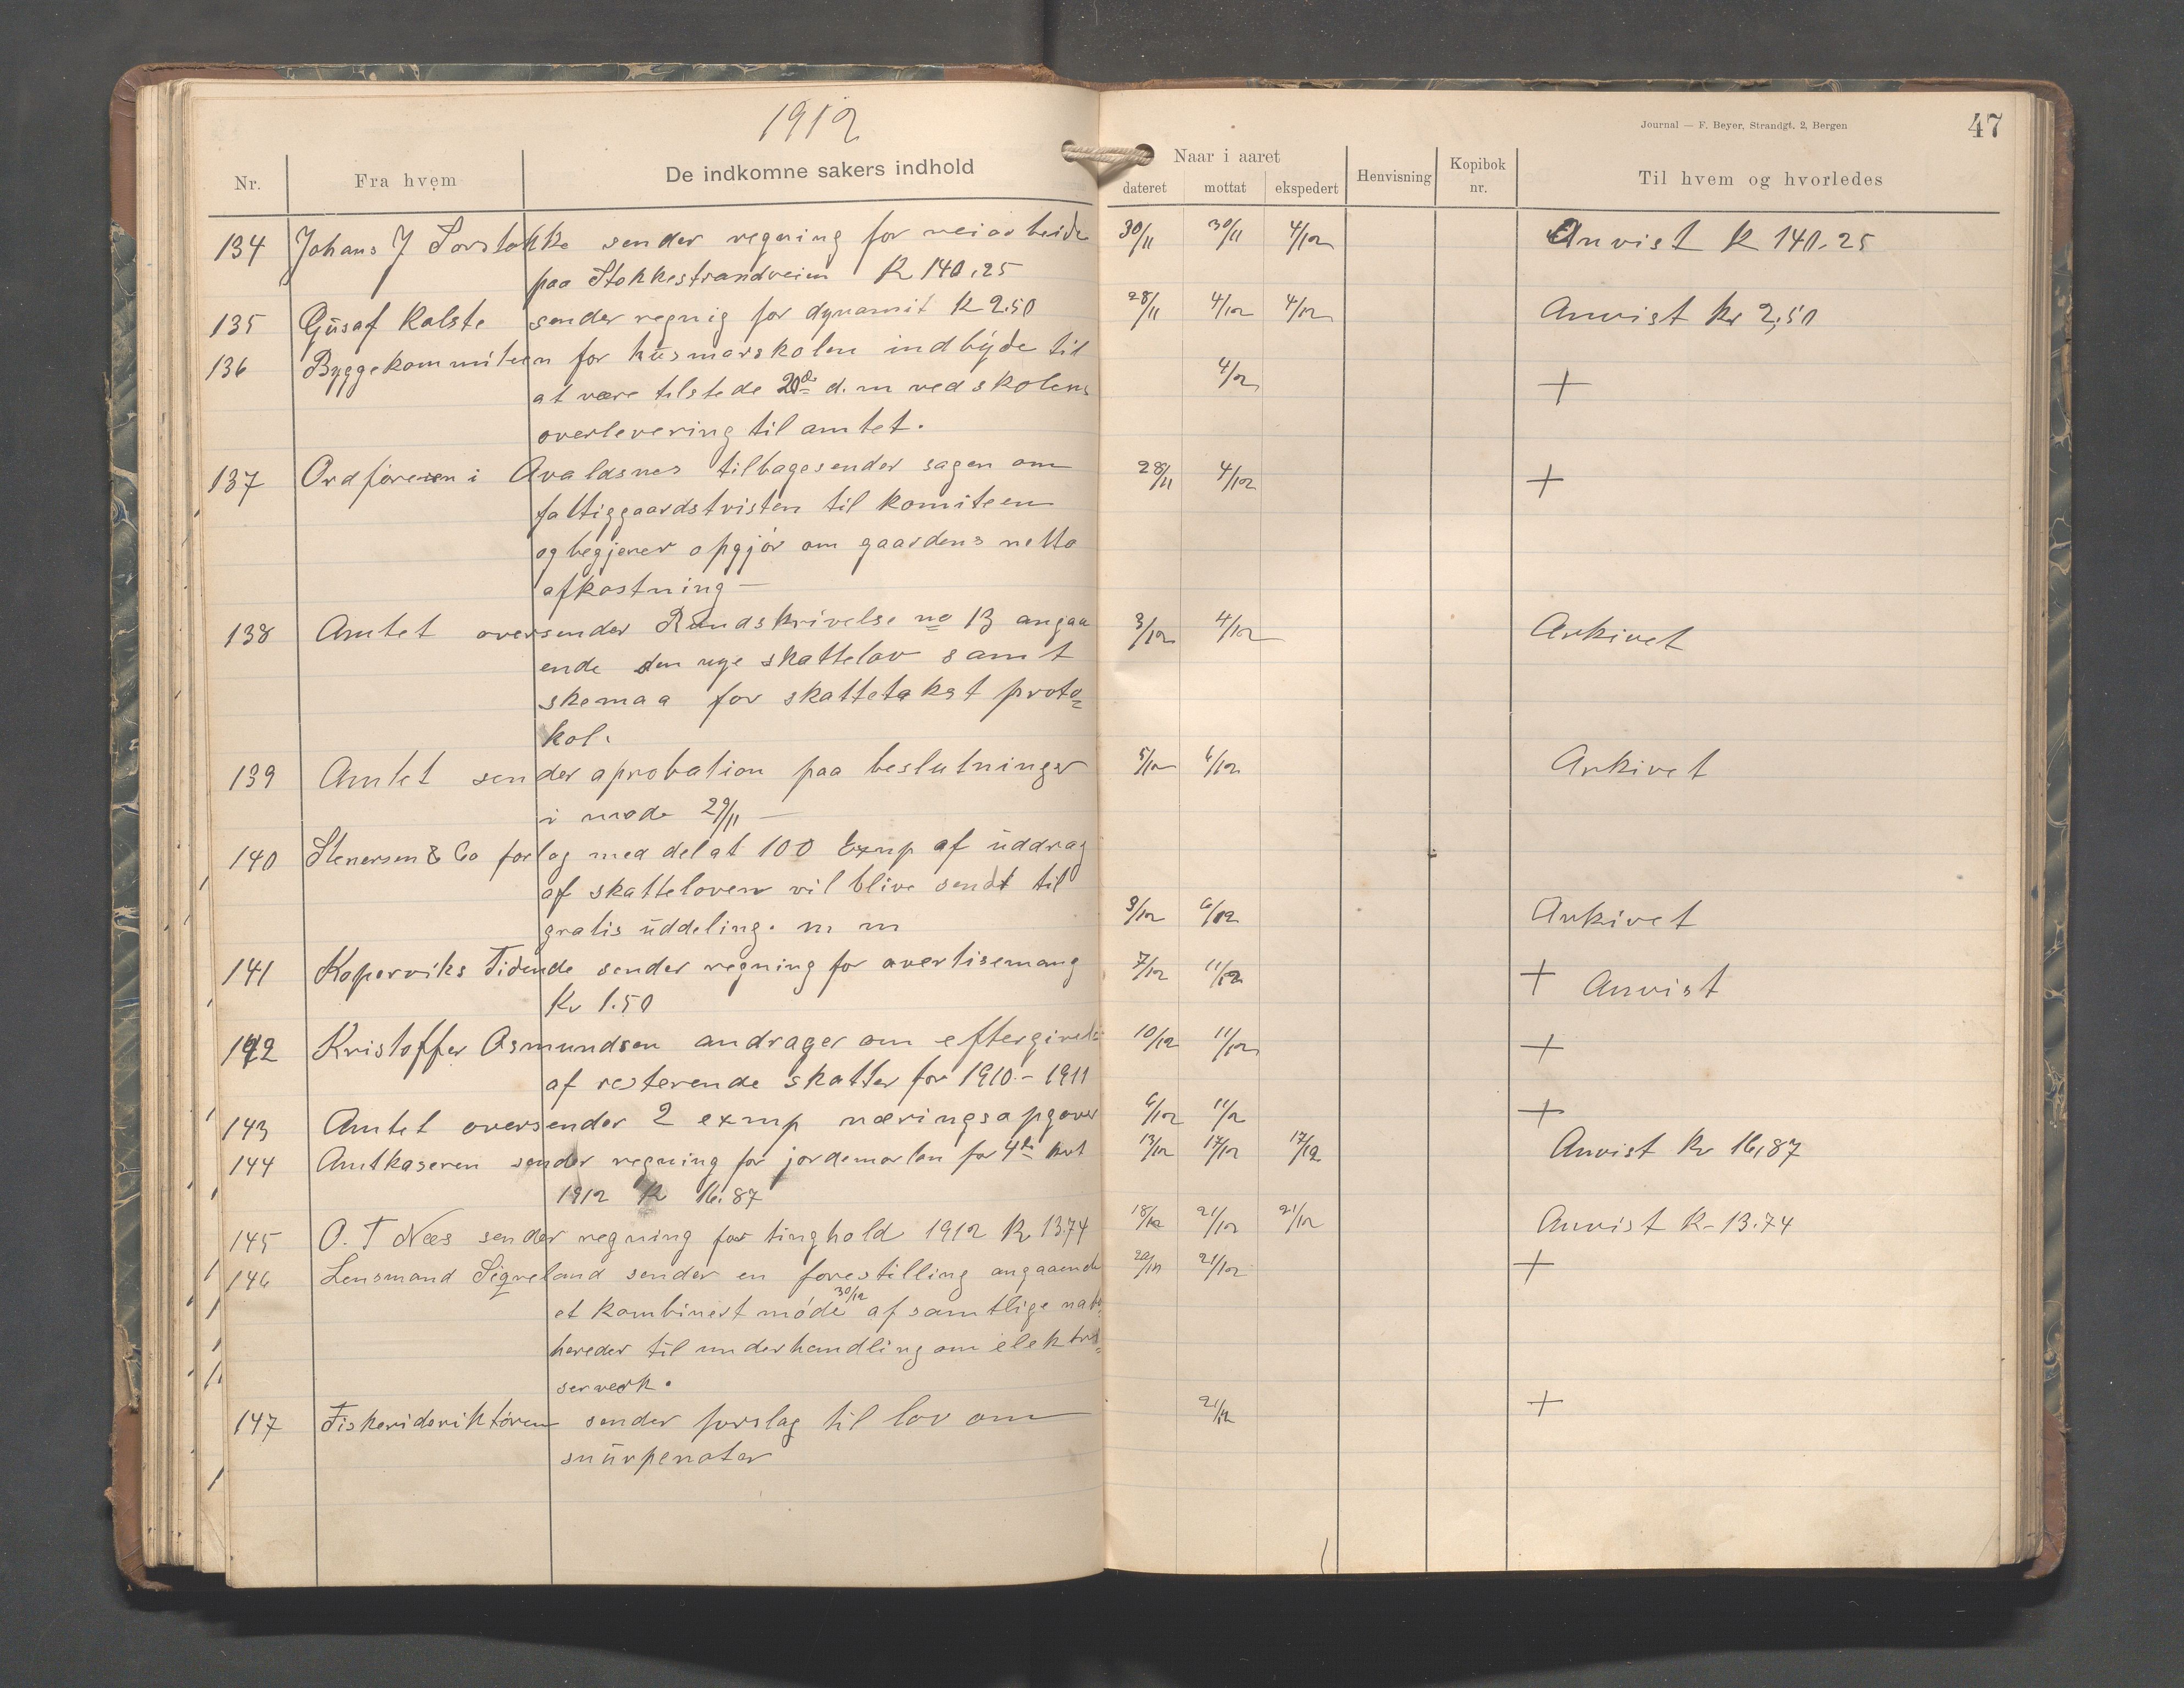 1912
Journal — F. Beyer, Strandgt. 2, Bergen
47
Nr. Fra hvem De indkomne sakers indhold Naar i aaret dateret mottat ekspedert Henvisning Kopibok nr. Til hvem og hvorledes
134 Johans J Sorstokke sender regning for veiarbeide 30/11 30/11 4/12 Anvist K 140.25
paa Stokkestrandveien K 140.25
135 Gusaf Kalstø sender regnig for dynamit K 2.50 28/11 4/12 4/12 Anvist kr 2,50
136 Byggekommiteen for husmorskolen indbyde til
at være tilstede 20de d.m ved skolens 4/12 +
overlevering til amtet.
137 Ordføreren i Avaldsnes tilbagesender sagen om 28/11 4/12 +
fattiggaardstvisten til komiteen
og begjerer opgjør om gaardens netto
afkastning —
138 Amtet oversender Rundskrivelse no 13 angaa 3/12 4/12 Arkivet
ende den nye skattelov samt
skemaa for skattetakst proto=
kol.
139 Amtet sender aprobation paa beslutninger 5/12 6/12 Arkivet
i møde 29/11 —
140 Stenersen & Co forlag meddel at 100 Exmp af uddrag
af skatteloven vil blive sendt til
gratis uddeling. m m 3/12 6/12 Arkivet
141 Koperviks Tidende sender regning for avertisemang 7/12 11/12 + Anvist
Kr 1.50
142 Kristoffer Asmundsen andrager om eftergivels 10/12 11/12 +
af resterende skatter for 1910 - 1911
143 Amtet oversender 2 exmp næringsopgaver 6/12 11/12 +
144 Amtkaseren sender regning for jordemorløn for 4de kvt 13/12 17/12 17/12 Anvist Kr 16,87
1912 K 16.87
145 O. T Næs sender regning for tinghold 1912 K 13.74 18/12 21/12 21/12 Anvist K - 13.74
146 Lensmand Sigveland sender en forestilling angaaende 20/12 21/12 +
et kombinert møde 30/12 af samtlige nabo
hereder til underhandling om elektri=
serverk.
147 Fiskeridirektøren sender forslag til lov om 21/12 +
snurpenoter